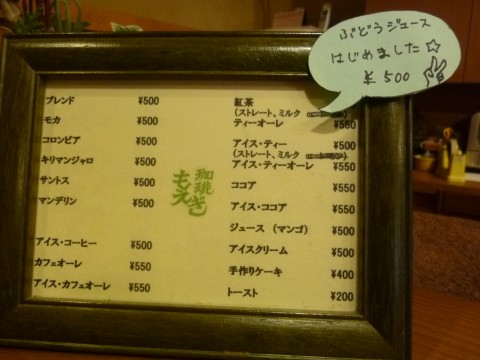 ぶどうジュース
はじめました☆
¥500
ブレンド ¥500
モカ ¥500
コロンビア ¥500
キリマンジャロ ¥500
サントス ¥500
マンデリン ¥500
アイス・コーヒー ¥500
カフェオーレ ¥550
アイス・カフェオーレ ¥550
珈琲
紅茶 ¥500
(ストレート、ミルク
ティーオーレ ¥550
アイス・ティー ¥500
(ストレート、ミルク
アイス・ティーオーレ ¥550
ココア ¥550
アイス・ココア ¥550
ジュース (マンゴ) ¥500
アイスクリーム ¥500
手作りケーキ ¥400
トースト ¥200